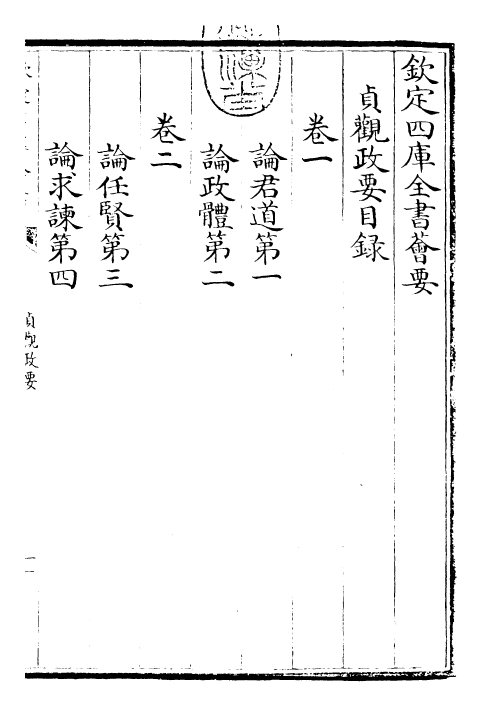 欽定四庫全書薈要
貞觀政要目録
卷一
論君道第一
論政體第二
卷二
論任賢第三
論求諫第四
貞觀政要